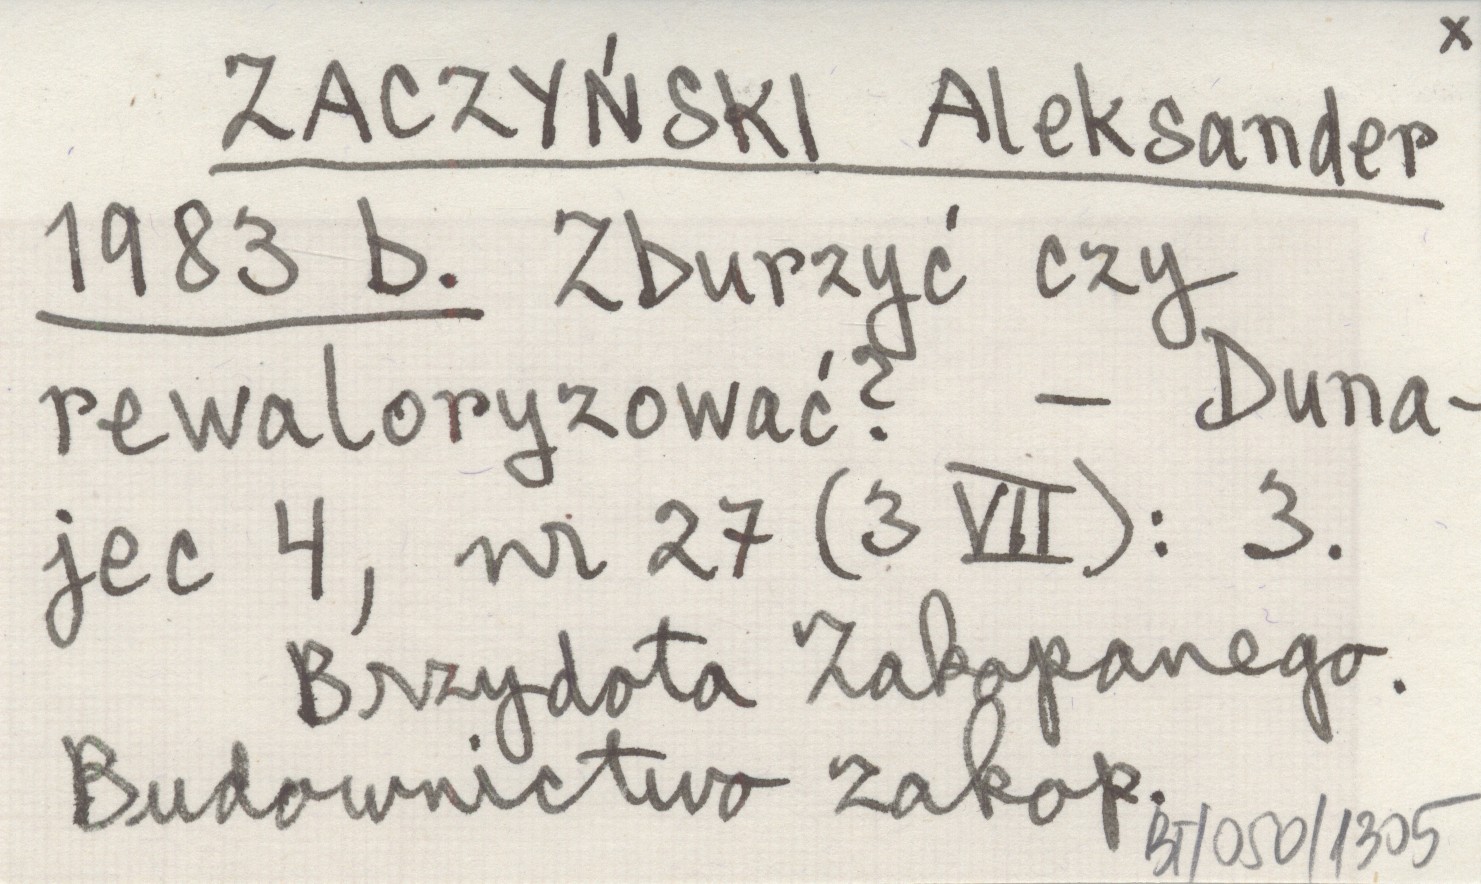 x
ZACZYŃSKI Aleksander
1983 b. Zburzyć czy
rewaloryzować? – Duna-
jec 4, nr 27 (3 VII): 3.
Brzydota Zakopanego.
Budownictwo zakop.
BT/050/1305